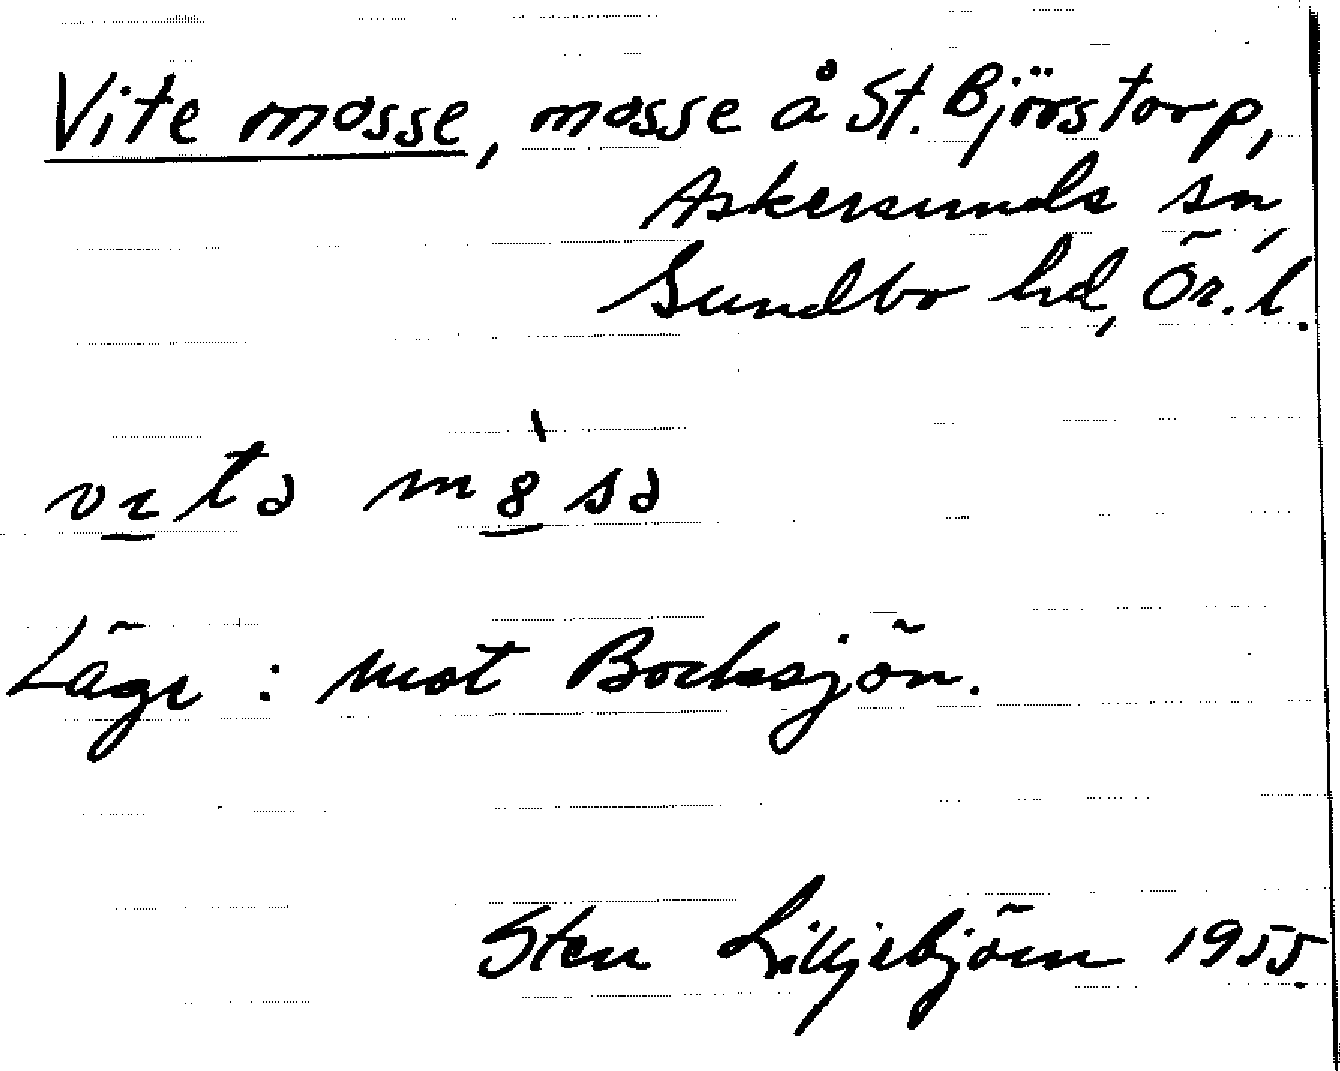 Vite mosse, mosse å St. Björstorp,
Askersunds sn,
Sundbo hd, Ör. l.
vıtə m8̀sə
Läge : mot Bocksjön.
Sten Lilljebjörn 1955.